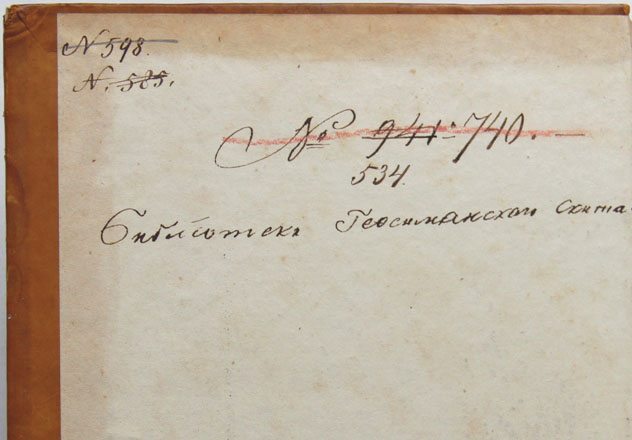 N 598.
N. 585.
№ 941. 740.
534.
Библіотеки Геѳсиманскаго Скита.